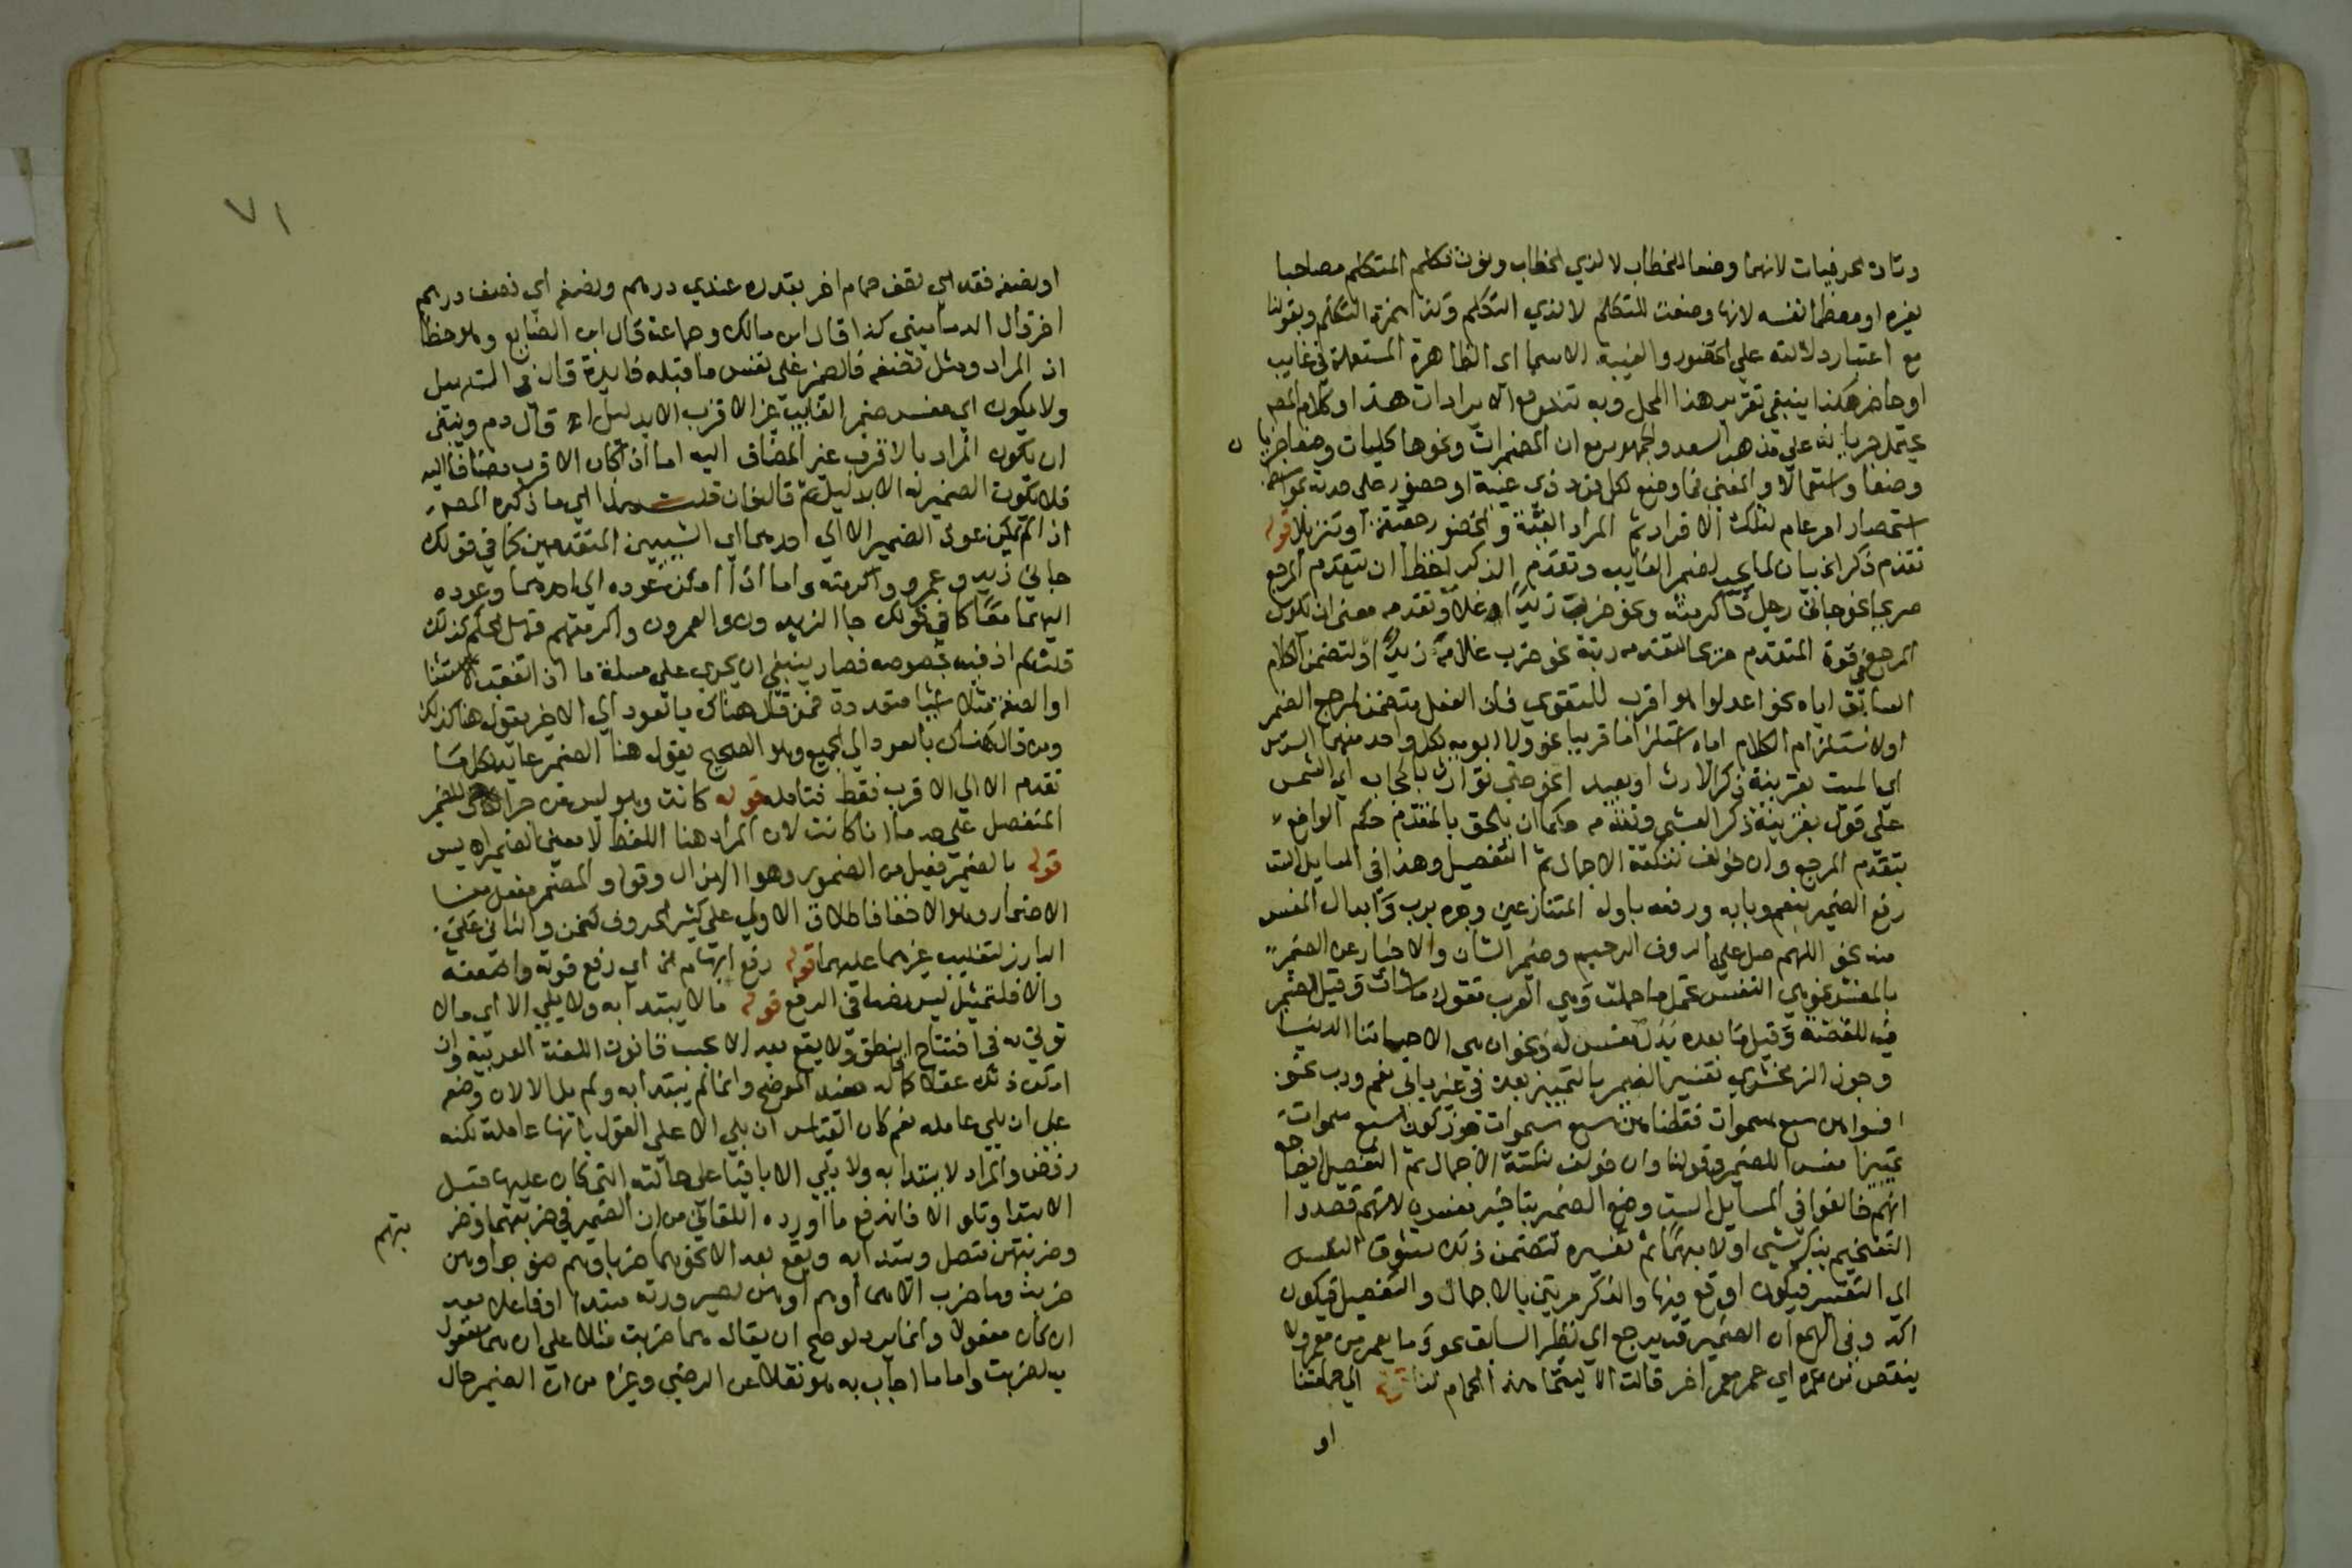 وتاء الحرفيات لانهما وضعا للخطاب لا لذي الخطاب ونون نكلم المتكلم مصاحبا
لغيره او معظما نفسه لانها وضعت للتكلم لا لذي التكلم وكذا همزة التكلم وبقولنا
مع اعتبار دلالته على الحضور والغيبة الاسماء الظاهرة المستعملة في غايب
او حاضر هكذا ينبغي تقرير هذا المحل وبه تندفع الايرادات هذا وكلام المص
يحتمل جريانه على مذهب السعد والجمهور من ان المضمرات ونحوها كليات وضعا جزئيات
وضعا واستعمالا والمعنى فما وضع لكل فرد ذي غيبة او حضور على حدته بواسطة
استحضار امر عام لتلك الافراد ثم المراد الغيبة والحضور حقيقة او تنزيلا قوله
تقدم ذكر الخ بيان لما يجب لضمير الغايب وتقدم الذكر لفظا ان يتقدم المرجع
صريحا نحو جاني رجل فاكرمته ونحو ضرب زيدا غلامه وتقدمه معنى ان يكون
المرجع في قوة المتقدم صريحا لتقدمه رتبة نحو ضرب غلامه زيد او لتضمن الكلام
السابق اياه نحو اعدلوا هو اقرب للتقوى فان الفعل يتضمن لمرجع الضمير
او لاستلزام الكلام اياه استلزاما قريبا نحو ولابويه لكل واحد منهما السدس
اي الميت بقرينة ذكر الارث او بعيدا نحو حتى توارت بالحجاب اي الشمس
على قول بقرينة ذكر العشي وتقدمه حكما ان يلحق بالمتقدم حكم الواضع
بتقدم المرجع وان خولف لنكتة الاجمال ثم التفصيل وهذا في المسايل الست
رفع الضمير بنعم وبابه ورفعه باول المتنازعين وجره برب وابدال المفسر
منه نحو اللهم صل عليه الروف الرحيم وضمير الشان والاخبار عن الضمير
بالمفسر نحو هي النفس تحمل ما حملت وهي العرب تقول ما شات وقيل الضمير
فيه للقصة وقيل ما بعده بدل مفسر له ونحو ان هي الا حياتنا الدنيا
وجوز الزمخشري تفسير الضمير بالتمييز بعده في غير بابي نعم ورب نحو
فسواهن سبع سموات فقضاهن سبع سموات جوز كون سبع سموات
تمييزا مفسرا للضمير وقولنا وان خولف لنكتة الاجمال ثم التفصيل ايضاحه
انهم خالفوا في المسايل الست وضع الضمير بتاخير مفسره لانهم قصدوا
التفخيم بذكر شي اولا مبهما ثم تفسيره لتضمن ذلك تشوق النفس
الى التفسير فيكون اوقع فيها والذكر مرتين بالاجمال والتفصيل فيكون
اكد وفي الهمع ان الضمير قد يرجع الى نظير السابق نحو وما يعمر من معمر ولا
ينقص من عمره اي عمر معمر اخر قالت الا ليتما هذا الحمام لنا الى حمامتنا
او
٧١
او نصفه فقد اي نصف حمام اخر بقدره عندي درهم ونصفه اي نصف درهم
اخر قال الدماميني كذا قال ابن مالك وجماعة قال ابن الضايع وهو خطا
اذ المراد ومثل نصفه فالضمير على نفس ما قبله فايدة قال في التسهيل
ولا يكون اي مفسر ضمير الغايب غير الاقرب الا بدليل اه قال دم وينبغي
ان يكون المراد بالاقرب غير المضاف اليه اما اذا كان الاقرب مضافا اليه
فلا يكون الضمير له الا بدليل ثم قال فان قلت هذا اي ما ذكره المص
اذا لم يمكن عود الضمير الا الى احدهما اي الشيئين المتقدمين كما في قولك
جاني زيد وعمرو واكرمته واما اذا امكن عوده الى احدهما وعوده
اليهما معا كما في قولك جا الزيدون والعمرون واكرمتهم فهل الحكم كذلك
قلت لم اقف فيه بخصوصه فصار ينبغي ان يجري على مسئلة ما اذا تعقب الاستثنا
او الصفة مثلا اشيا متعددة فمن قال هناك بالعود الى الاخير يقول هنا كذلك
ومن قال هناك بالعود الى الجميع وهو الصحيح يقول هنا الضمير عايد لكل ما
تقدم لا الى الاقرب فقط فتامله قوله كانت وهو ليس من جزا للضمير
المنفصل على حد ما انا كانت لان المراد هنا اللفظ لا معنى الضمير اه يس
قوله بالضمير فعيل من الضمور وهو الهزال وقوله والمضمر مفعل من
الاضمار وهو الاخفا فاطلاق الاول على كثير الحروف كنحن والثاني على
البارز لتغليب غيرهما عليهما قوله رفع ابهام الخ اي رفع قوله وانت
والا فليتمثيل ليس نصا في الرفع قوله ما لا يبتدا به ولا يلي الا اي ما لا
توتي به في افتتاح النطق ولا يقع بعد الا بحسب قانون اللغة العربية وان
امكن ذلك عقلا كما له عند الموضح وانما لم يبتدا به ولم يل الا لان وضعه
على ان يلي عامله نعم كان القياس ان يلي الا على القول بانها عاملة لكنه
رفض والمراد لا يبتدا به ولا يلي الا باقيا على حالته التي كان عليها قبل
الابتدا وتلو الا فاندفع ما اورده اللقاني من ان الضمير في ضربتهما وضر
بتهم
وضربتهن متصل ويبتدا به ويقع بعد الا نحو هما ضربا وهم ضربوا وهن
ضربن وما ضرب الا هما او هم او هن لصيرورته مبتدا او فاعلا بعد
ان كان مفعولا وانما يرد لو صح ان يقال هما ضربت مثلا على ان هما مفعول
به لضربت واما ما اجاب به هو نقلا عن الرضي وغيره من ان الضمير حال